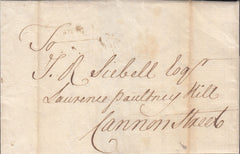 To
J. R. Siebell Esqr
Laurence Paultney Hill
Cannon Street